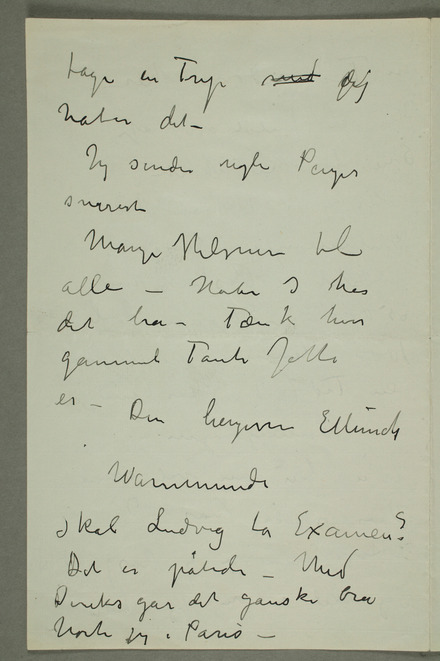 tage en Trip med Jeg
håber det –
Jeg sender nogle Penge
snarest
Mange Hilsener til
alle – Håber I har
det bra – Tænk hvor
gammel Tante Jetta
er –
Din hengivne EMunch
Warnemünde
skal Ludvig ta Examen?
Det er påtide – Med
Direks gar det ganske bra
Hørte jeg i Paris –